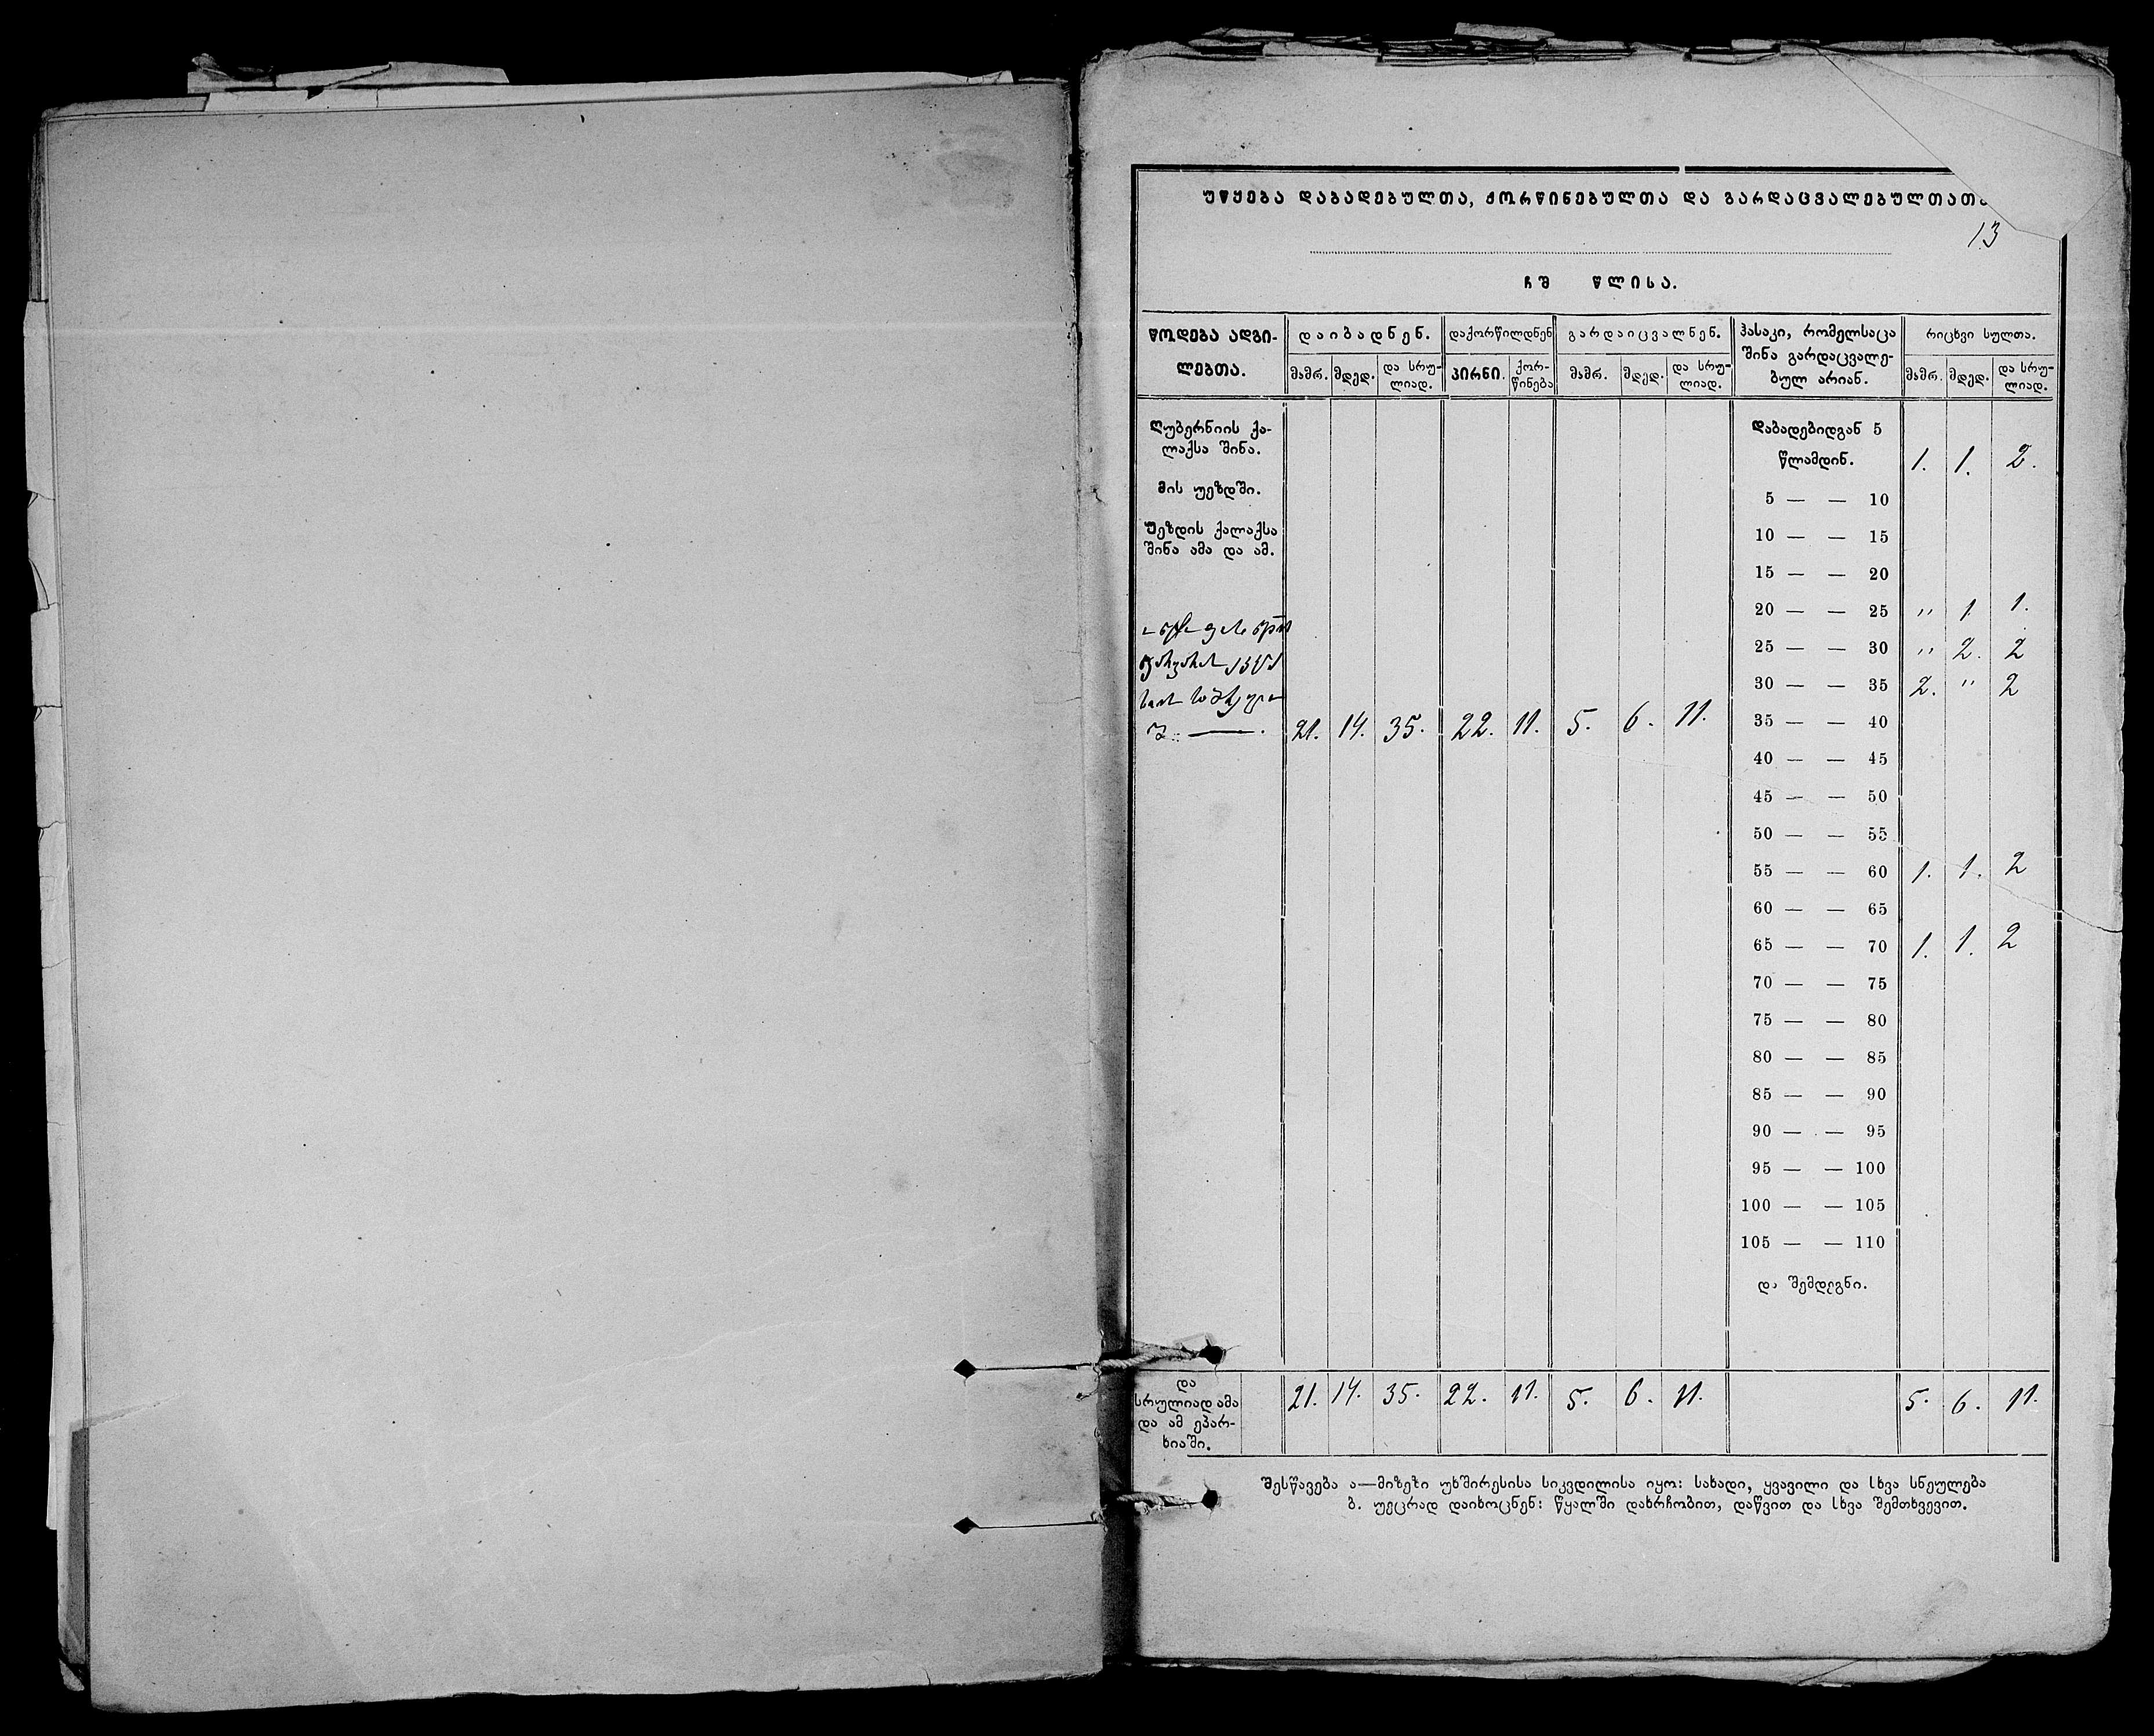 უწყება დაბადებულთა, ქორწინებულთა და გარდაცვალებულთათ
13
ჩშ წლისა.
წოდება ადგი-
ლებთა.
დაიბადნენ.
დაქორწილდნენ
გარდაიცვალნენ.
ჰასაკი, რომელსაცა
შინა გარდაცვალე-
ბულ არიან.
რიცხვი სულთა.
მამრ. მდედ. და სრუ-
ლიად.
პირნი. ქორ-
წინება
მამრ. მდედ. და სრუ-
ლიად.
მამრ. მდედ. და სრუ-
ლიად.
Ღუბერნიის ქა-
ლაქსა შინა.
მის უეზდში.
უეზდის ქალაქსა
შინა ამა და ამ.
21. 14. 35. 22. 11. 5. 6. 11.
დაბადებიდგან 5
წლამდინ. 1. 1. 2.
5 — — 10
10 — — 15
15 — — 20
20 — — 25 " 1 1.
25 — — 30 " 2. 2
30 — — 35 2. " 2
35 — — 40
40 — — 45
45 — — 50
50 — — 55
55 — — 60 1. 1. 2
60 — — 65
65 — — 70 1. 1. 2
70 — — 75
75 — — 80
80 — — 85
85 — — 90
90 — — 95
95 — — 100
100 — — 105
105 — — 110
და შემდეგნი.
და
სრულიად ამა
და ამ ეპარ-
ხიაში.
21. 14. 35. 22. 11. 5. 6. 11. 5. 6. 11.
შესწავება ა—მიზეზი უხშირესისა სიკვდილისა იყო: სახადი, ყვავილი და სხვა სნეულება
ბ. უეცრად დაიხოცნენ: წყალში დახრჩობით, დაწვით და სხვა შემთხვევით.